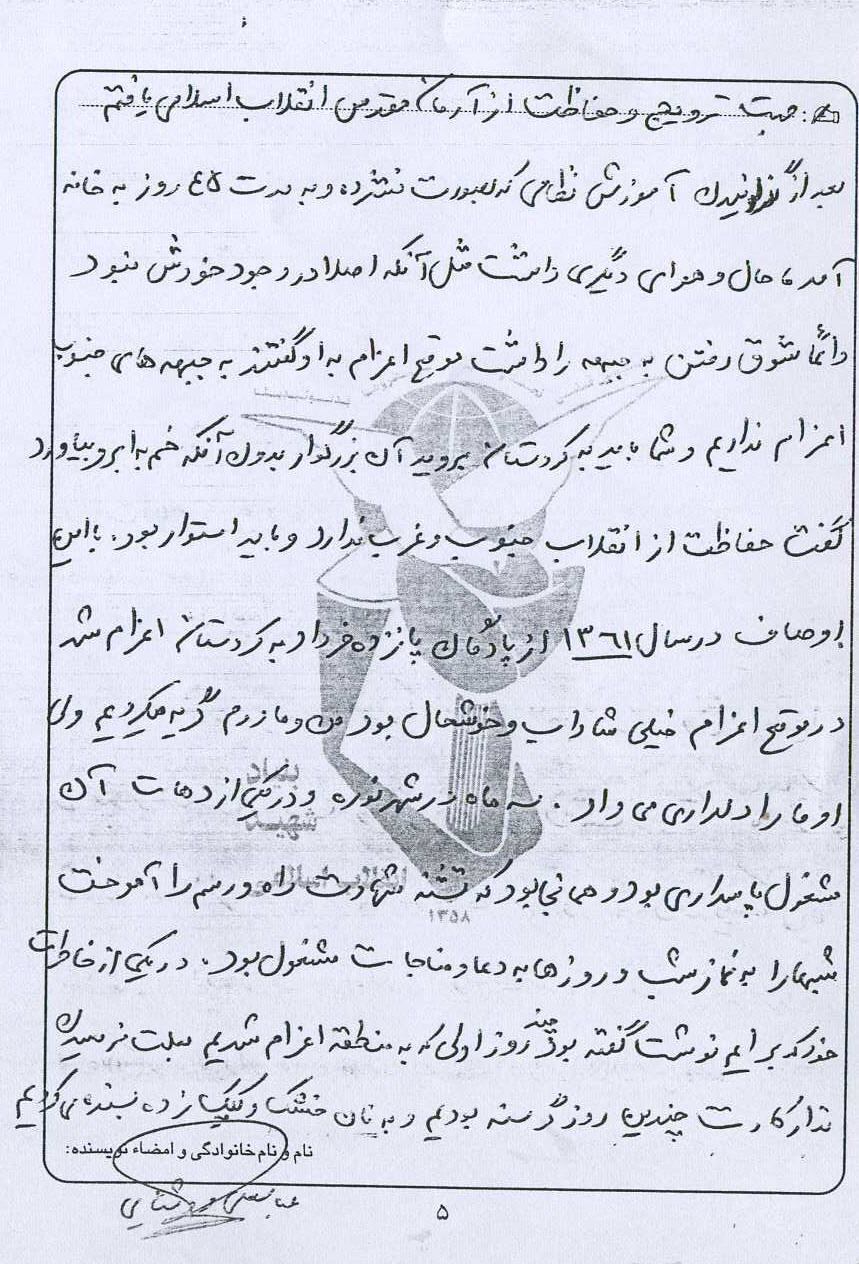 جهت ترویج و حفاظت از آرمان مقدس انقلاب اسلامی یافتم
بعد از گذرانیدن آموزش نظامی که بصورت فشرده و به مدت ۴۵ روز به خانه
آمد ما حال و هوای دیگری داشت مثل آنکه اصلا در وجود خودش نبود
دائماً شوق رفتن به جبهه را داشت موقع اعزام به او گفتند به جبهه های جنوب
اعزام نداریم و شما باید به کردستان بروید آن بزرگوار بدون آنکه خم به ابرو بیاورد
گفت حفاظت از انقلاب جنوب و غرب ندارد و باید استوار بود. با این
اوصاف در سال ۱۳۶۱ از پادگان پانزده خرداد به کردستان اعزام شد
در موقع اعزام خیلی شاداب و خوشحال بود من و مادرم گریه میکردیم ولی
او ما را دلداری می داد. سه ماه در شهر نوره و در یکی از دهات آن
مشغول پاسداری بود و همانجا بود که تشنه شهادت راه و رسم را آموخت
شبها را به نماز شب و روزها به دعا و مناجات مشغول بود. در یکی از خاطرات
خود که برایم نوشت گفته بود چند روز اولی که به منطقه اعزام شدیم بعلت نرسیدن
تدارکات چندین روز گرسنه بودیم و به نان خشک و کپک زده بسنده می کردیم
نام و نام خانوادگی و امضاء نویسنده:
۵
بنیاد
شهید
انقلاب اسلامی
۱۳۵۸